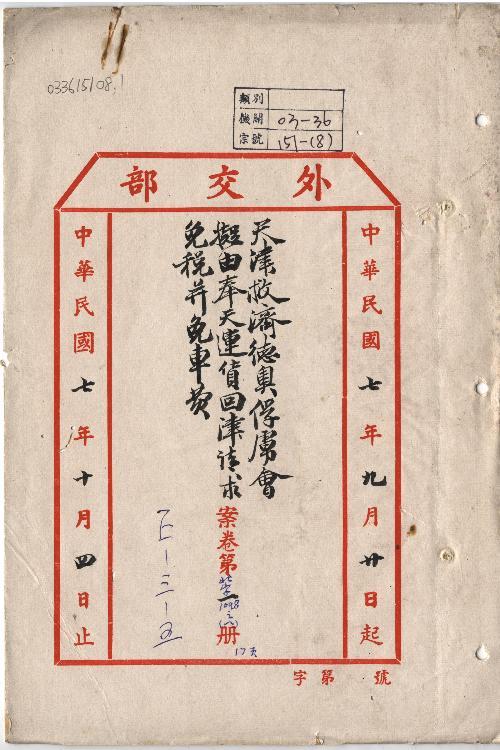 033615108.1
類別
機關 03-36
宗號 151-(8)
外交部
中華民國七年九月廿日起
天津救濟德奧俘虜會
擬由奉天運貨回津請求
免稅并免車費
案卷第一册
17頁
中華民國七年十月四日止
字第號